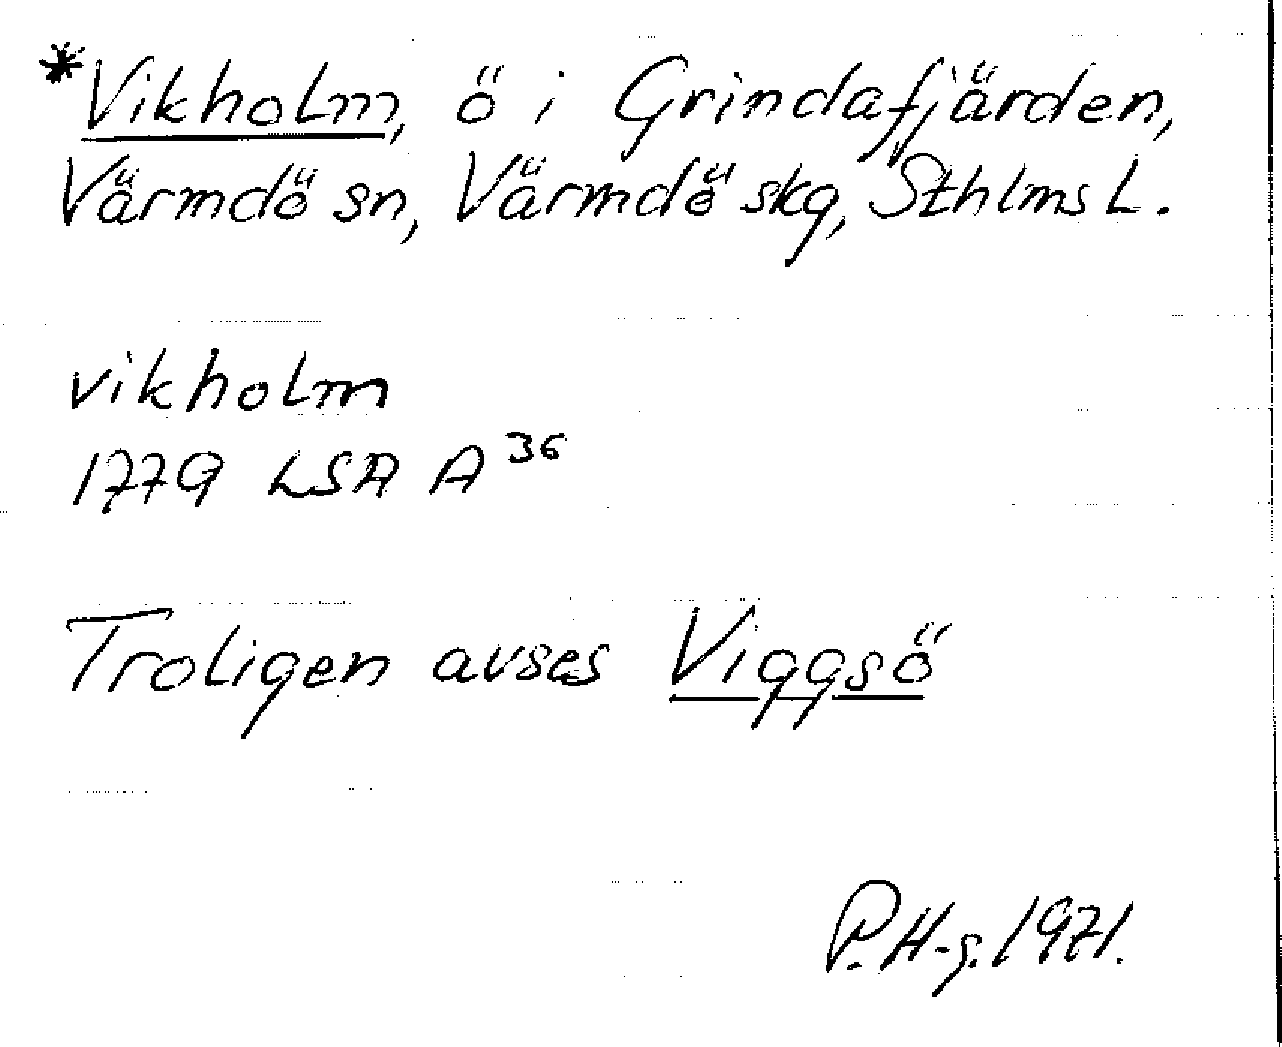 *Vikholm, ö i Grindafjärden,
Värmdö sn, Värmdö skg, Sthlms L.
vikholm
1779 LSA A³⁶
Troligen avses Viggsö
P. H-g. 1971.